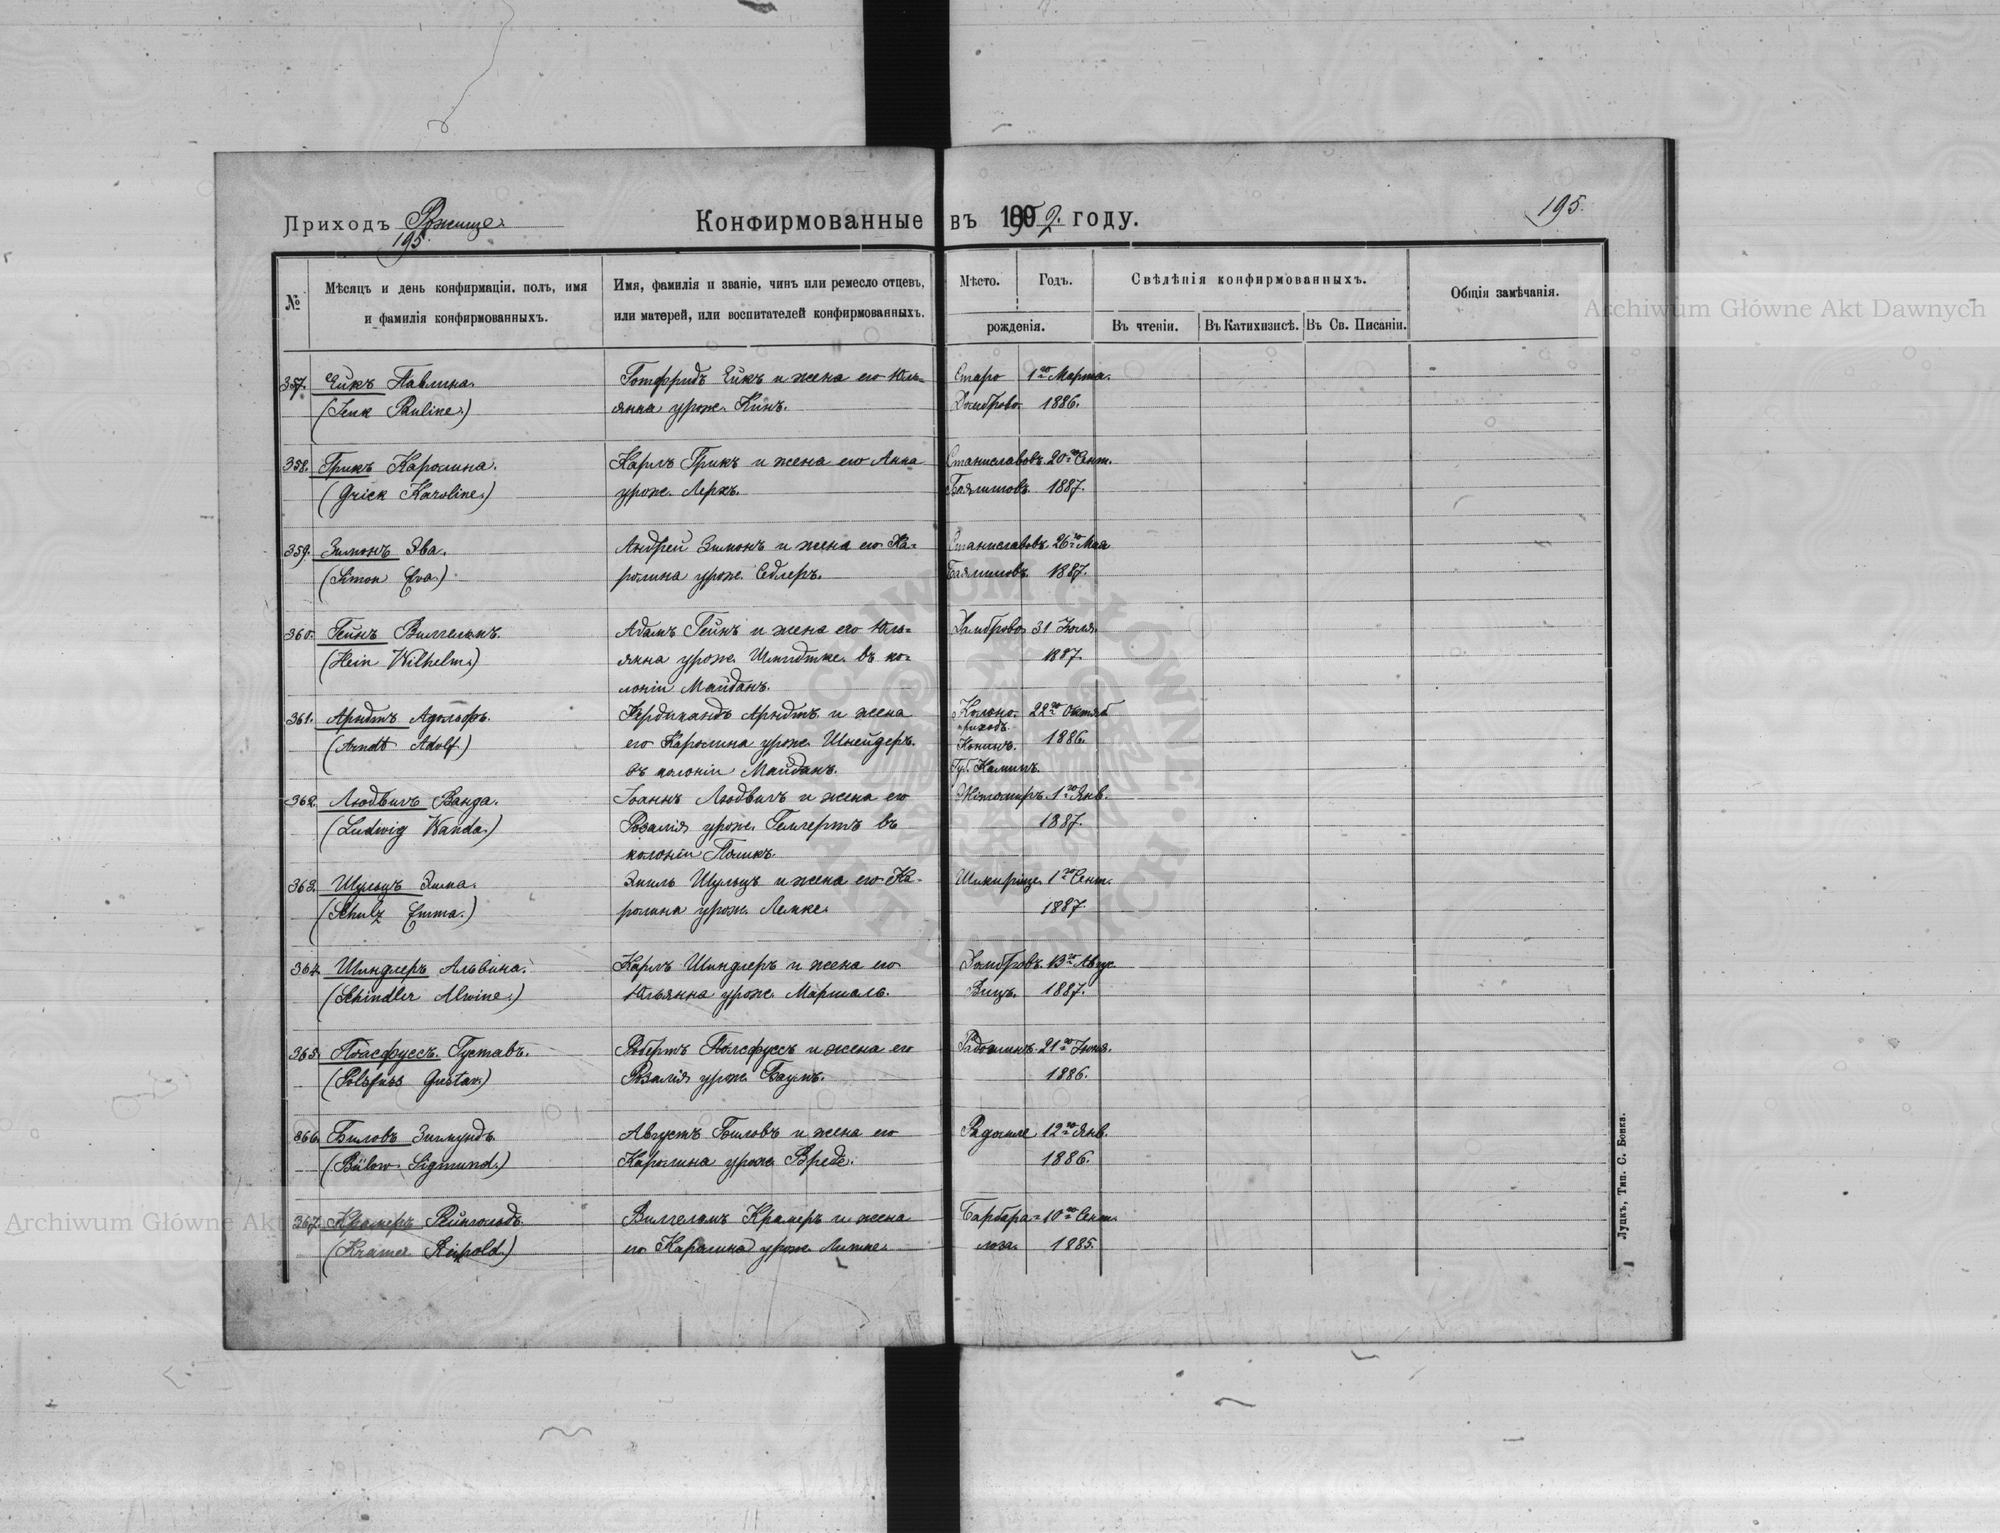 Приходъ Рожище.
195.
Конфирмованные въ 1902. году.
195.
№
Мѣсяцъ и день конфирмаціи, полъ, имя
и фамилія конфирмованныхъ.
Имя, фамилія и званіе, чинъ или ремесло отцевъ,
или матерей, или воспитателей конфирмованныхъ.
Мѣсто.
Годъ.
рожденія.
Свѣдѣнія конфирмованныхъ.
Въ чтеніи.
Въ Катихизисѣ.
Въ Св. Писаніи.
Общія замѣчанія.
Archiwum Główne Akt Dawnych
357. Ейкъ Павлина. Готфридъ Ейкъ и жена его Юль= Старо 1го Марта.
(Jeuk Pauline.) янна урож. Кинъ. Домброво 1886.
358. Грикъ Каролина. Карлъ Грикъ и жена его Анна Станиславовъ. 20го Сент.
(Grick Karoline.) урож. Леркъ. 1887.
359. Зимонъ Эва. Андрей Зимонъ и жена его Ка= Станиславовъ. 26го Мая
(Simon Eva.) ролина урож. Седлеръ. 1887.
360. Гейнъ Вилгелмъ. Адамъ Гейнъ и жена его Юль= Домброво 31 Іюля.
(Hein Wilhelm.) янна урож. Шмидтке. въ ко= 1887.
лоніи Майданъ.
361. Арндтъ Адольфъ. Фердинандъ Арндтъ и жена 22го Октяб
(Arndt Adolf.) его Каролина урож. Шнейдеръ. приходъ. Конинъ. 1886.
въ колоніи Майданъ. Губ. Калиш.
362. Людвигъ Ванда. Іоаннъ Людвигъ и жена его Житомиръ. 1го Янв.
(Ludwig Wanda.) Розалія урож. Гемгертъ въ 1887.
колоніи
363. Шульцъ Эмма. Эмиль Шульцъ и жена его Ка= 1го Сент.
(Schulz Emma.) ролина урож. Лемке. 1887.
364. Шиндлеръ Альвина. Карлъ Шиндлеръ и жена его Домбровъ. 13го Авгус.
(Schindler Alwine.) Юльянна урож. Маршаль. 1887.
365. Полсфуссъ. Густавъ. Робертъ Полсфуссъ и жена его 21го
(Polsfuss Gustav.) Розалія урож. Баумъ. 1886.
366. Биловъ Зигмундъ. Августъ Биловъ и жена его 12го Янв.
(Bülow Sigmund.) Каролина урож. Вреде. 1886.
367. Крамеръ Рейнгольдъ. Вилгелмъ Крамеръ и жена Барбара= 10го Сент.
(Kramer Reinhold.) его Каролина урож. 1885.
Луцкъ, Тип. С. Бокка.
Archiwum Główne Akt